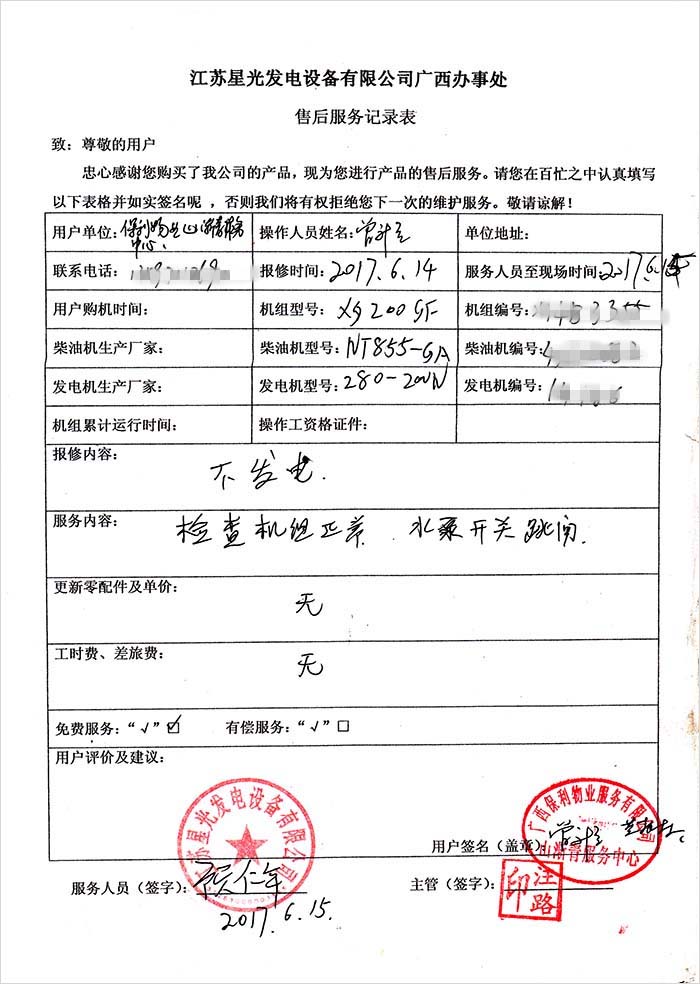 江苏星光发电设备有限公司广西办事处
售后服务记录表
致：尊敬的用户
忠心感谢您购买了我公司的产品，现为您进行产品的售后服务。请您在百忙之中认真填写
以下表格并如实签名呢，否则我们将有权拒绝您下一次的维护服务。敬请谅解！
用户单位：保利物业山渐青服务中心 操作人员姓名： 单位地址：
联系电话： 报修时间：2017.6.14 服务人员至现场时间：2017.6.15
用户购机时间： 机组型号：XG200GF 机组编号：
柴油机生产厂家： 柴油机型号：NT855-GA 柴油机编号：
发电机生产厂家： 发电机型号：280-200N 发电机编号：
机组累计运行时间： 操作工资格证件：
报修内容：
不发电.
服务内容：
检查机组正常 水泵开关跳闸.
更新零配件及单价：
无
工时费、差旅费：
无
免费服务：“√”☑ 有偿服务：“√”□
用户评价及建议：
江苏星光发电设备有限公司
广西保利物业服务有限公司
山渐青服务中心
用户签名（盖章）：
服务人员（签字）： 主管（签字）：
汪路印
2017.6.15.